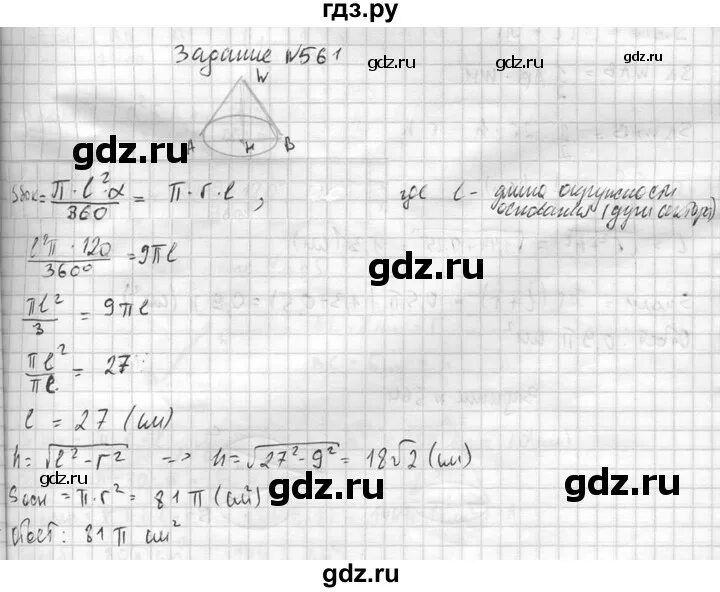 гдз.ру
Задание №561
gdz.ru gdz.ru
W
A H B
gdz.ru
Sбок = π·l²·α/360 = π·r·l, где l - длина окружности
основания (дуги сектора)
l²π·120/360° = 9πl
gdz.ru
πl²/3 = 9πl
gdz.ru
πl²/πl = 27
l = 27 (см)
h = √l² - r² => h = √27² - 9² = 18√2 (см)
gdz.ru gdz.ru
Sосн = π·r² = 81π (см²)
gdz.ru
Ответ: 81π см²
gdz.ru